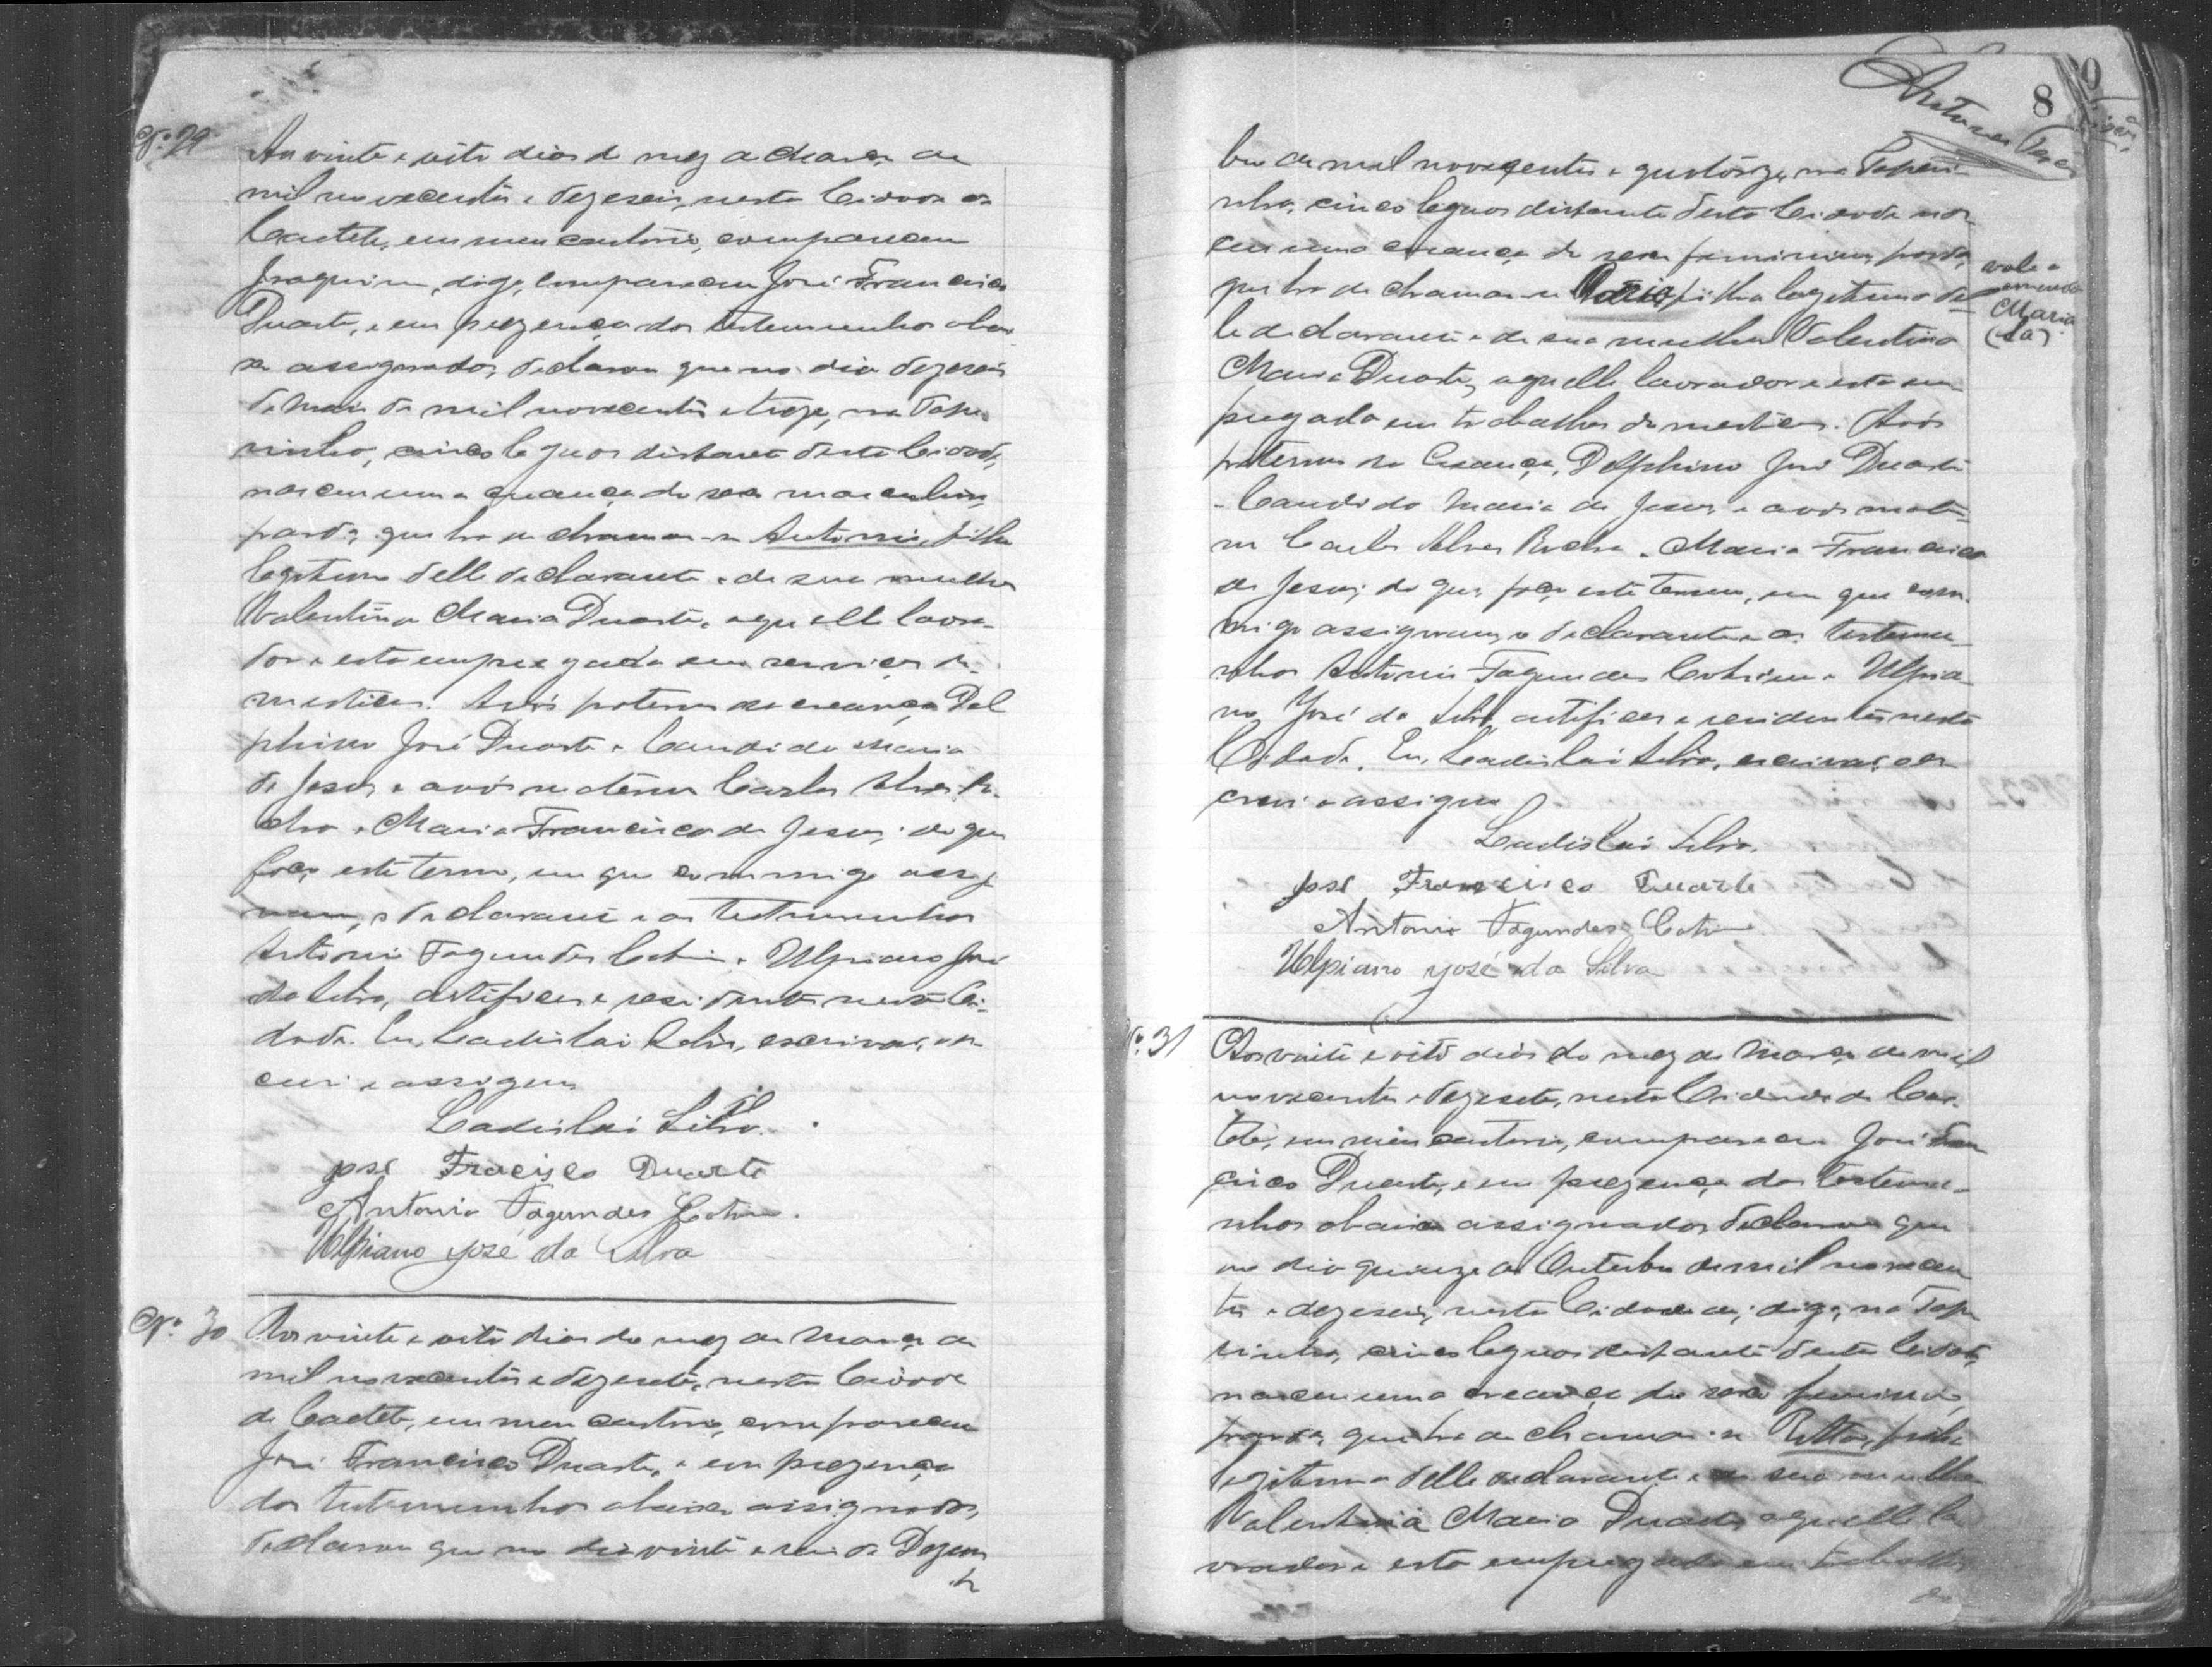 Nº 29
Aos vinte e oito dias do mez de Março de
mil novecentos e dezeseis, nesta Cidade de
Caeteté, em meu cartorio, compareceu
Joaquim, digo, compareceu José Francisco
Duarte, e em prezença das testemunhas abai-
xo assignadas, declarou que no dia dezeseis
de Maio de mil novecentos e treze, na Tape-
rinha, cinco leguas distante desta Cidade,
nasceu uma creança do sexo masculino,
parda, que ha de chamar-se Antonio, filho
legitimo delle declarante e de sua mulher
Valentina Maria Duarte, aquelle lavra-
dor e esta empregada em serviços do-
mesticos. Avós paternos da creança Del
phino José Duarte e Candida Maria
de Jesus e avós maternos Carlos Alves Ro-
cha e Maria Francisca de Jesus; do que
faço este termo, em que commigo assig-
nam, o declarante e as testemunhas
Antonio Fagundes Cotrim e Ulpiano José
da Silva, artifices e residentes nesta Ci-
dade. Eu, Ladislau Silva, escrivão, es-
crevi e assigno
Ladislau Silva.
José Fracisco Duarte
Antonio Fagundes Cotrim.
Ulpiano José da Silva
Nº 30
Aos vinte e oito dias do mez de Março de
mil novecentos e dezesete, nesta Cidade
de Caeteté, em meu cartorio, compareceu
José Francisco Duarte, e em prezença
das testemunhas abaixo assignadas,
declarou que no dia vinte e seis de Dezem
8
bro de mil novecentos e quatorze, na Taperi-
nha, cinco leguas distante desta Cidade nas-
ceu uma creança do sexo feminino, parda,
que ha de chamar-se Maria, filha legitima del-
le declarante e de sua mulher Valentina
Maria Duarte, aquelle lavrador e esta em-
pregada em trabalhos domesticos. Avós
paternos da Creança, Delphino José Duarte
e Candida Maria de Jesus e avós mater-
nos Carlos Alves Rocha e Maria Francisca
de Jesus; do que, faço este termo, em que com-
migo assignam, o declarante e as testemu-
nhas Antonio Fagundes Cotrim e Ulpia-
no José da Silva, artifices e residentes nesta
Cidade. Eu, Ladislau Silva, escrivão, es-
crevi e assigno
vale a
emenda
Maria
Ladislau Silva.
José Francisco Duarte
Antonio Fagundes Cotrim
Ulpiano José da Silva
Nº 31
Aos vinte e oito dias do mez de Março de mil
novecentos e dezesete, nesta Cidade de Cae-
teté, em meu cartorio, compareceu José Fran
cisco Duarte, e em prezença das testemu-
nhas abaixo assignadas declarou que
no dia quinze de Outubro de mil novecen
tos e dezeseis, nesta Cidade de, digo, na Tape
rinha, cinco leguas distante desta Cidade,
nasceu uma creança do sexo feminino,
parda, que ha de chamar-se Ritta, filha
legitima delle declarante e de sua mulher
Valentina Maria Duarte, aquelle la
vrador e esta empregada em trabalhos
do